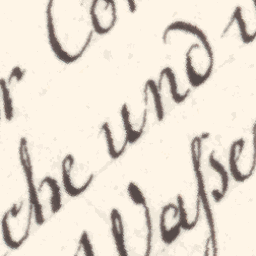 r Co
che und
Wasse